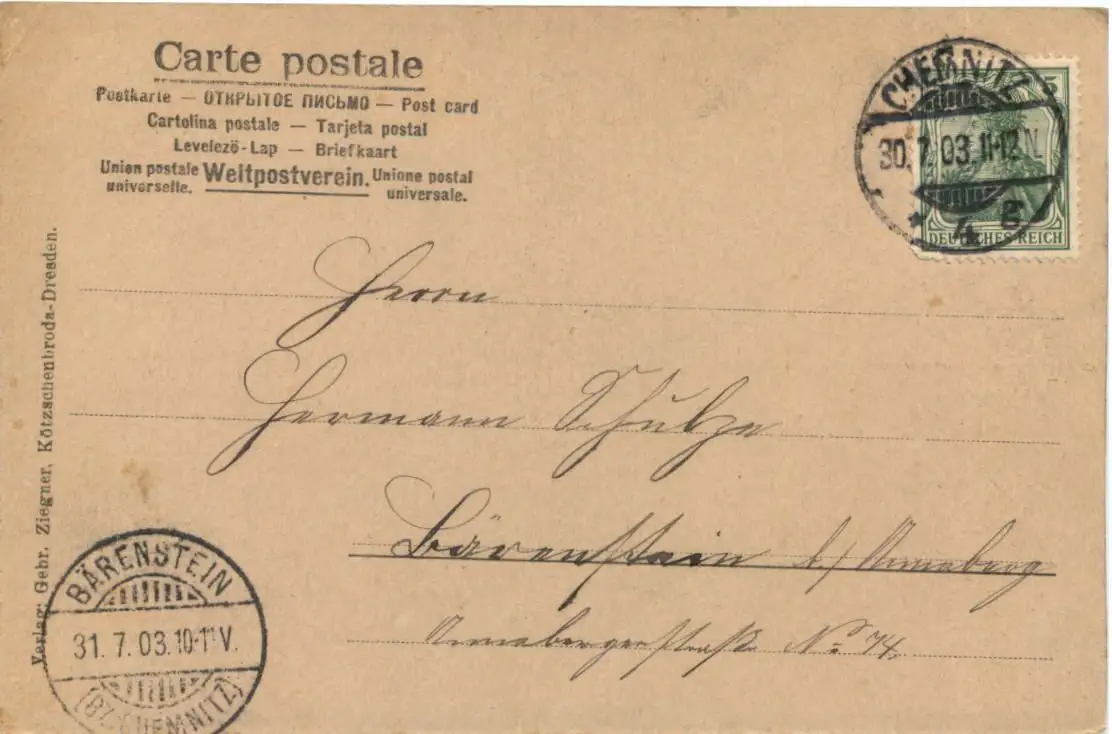 Carte postale
Postkarte — ОТКРЫТОЕ ПИСЬМО — Post card
Cartolina postale — Tarjeta postal
Levelezö-Lap — Briefkaart
Union postale universelle. Weltpostverein. Unione postal universale.
CHEMNITZ
30. 7. 03. 11-12 N.
* 4 E
5
DEUTSCHES REICH
Herrn
Hermann Schulze
Bärenstein b/ Annaberg
Annabergerstraße No 74.
Verlag: Gebr. Ziegner, Kötzschenbroda-Dresden.
BÄRENSTEIN
31. 7. 03. 10-11 V.
(BZ. CHEMNITZ)